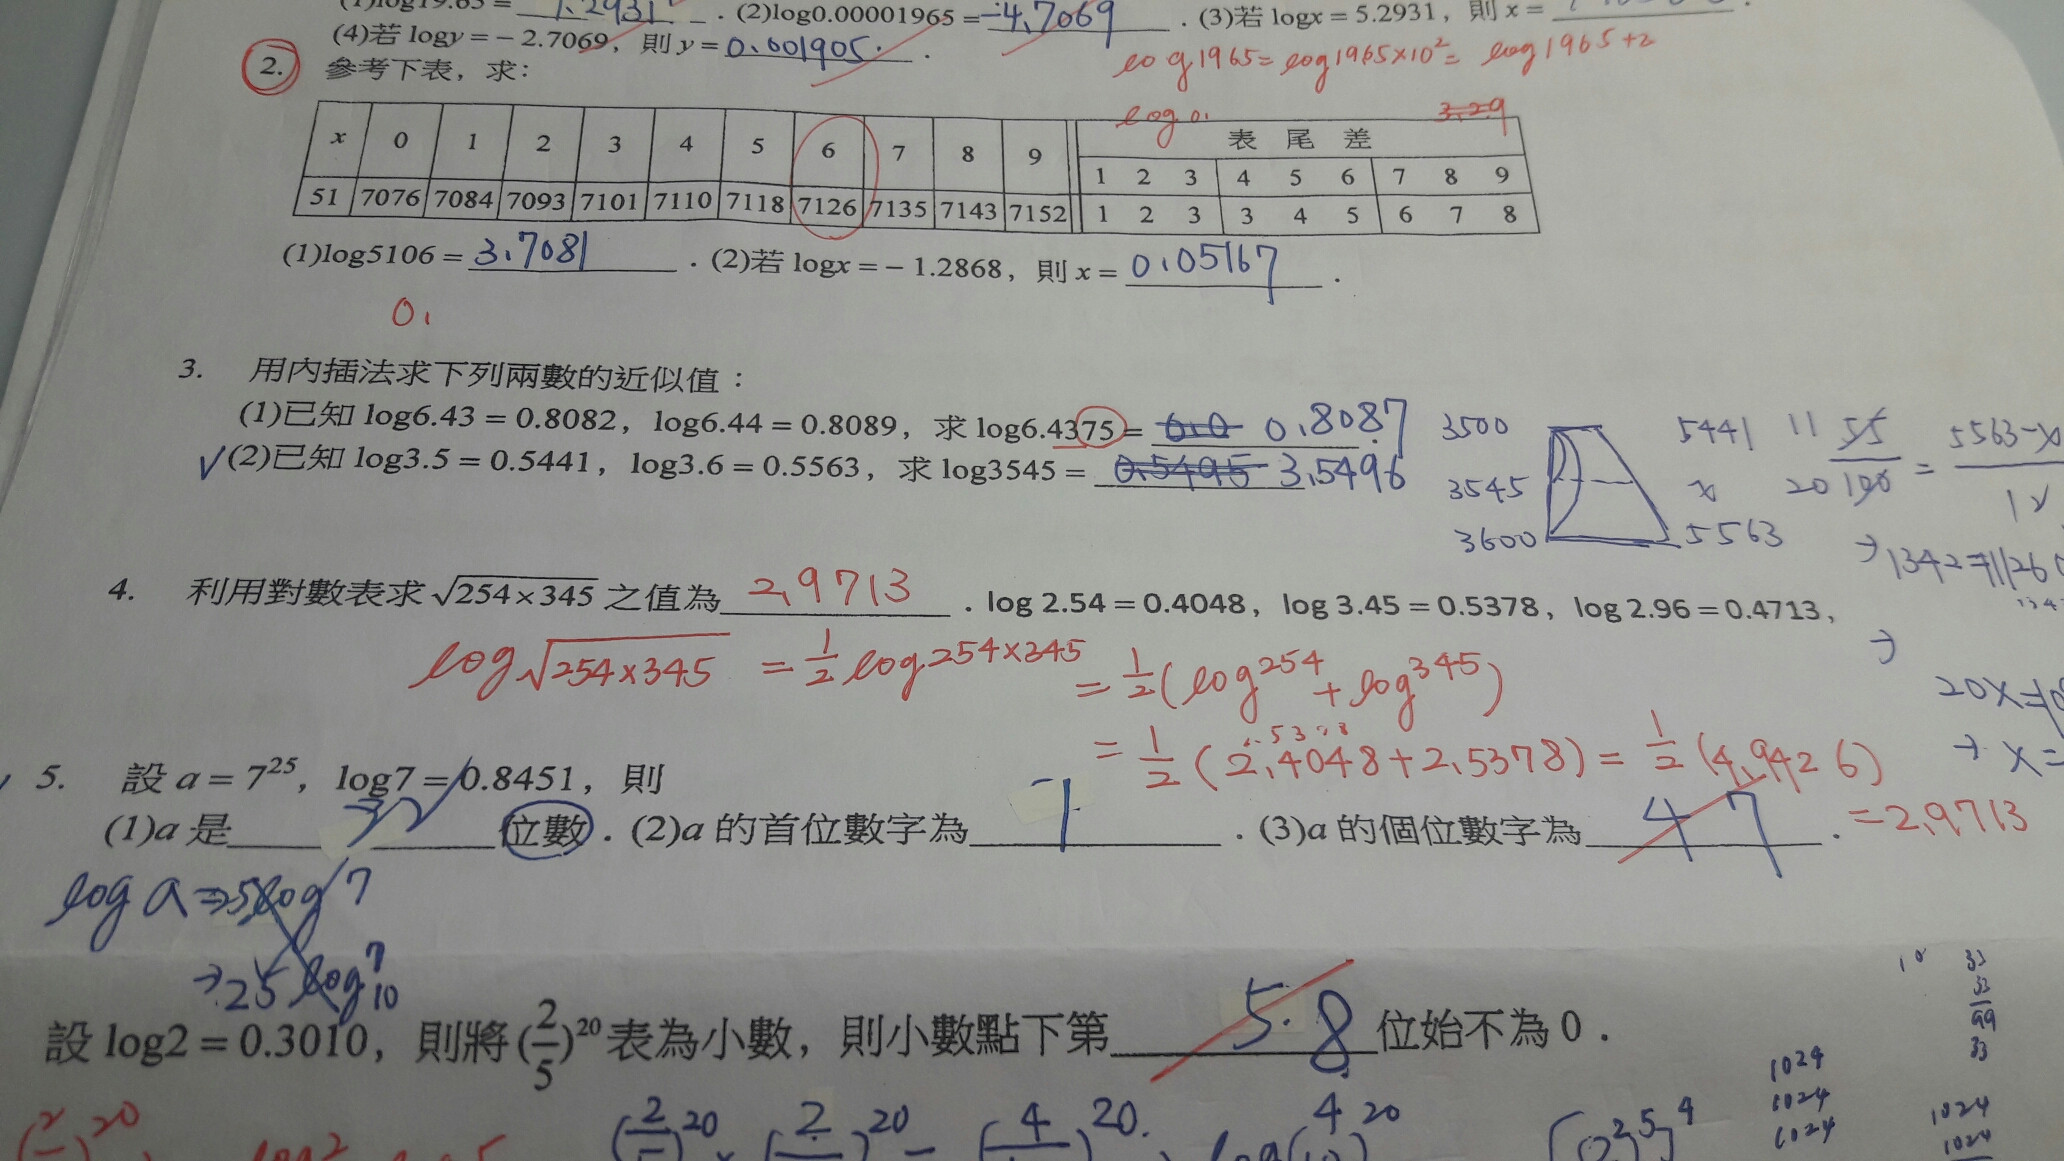 (1)log19.65 = 1.2931 . (2)log0.00001965 = -4.7069 . (3)若 logx = 5.2931, 則 x =
(4)若 logy = − 2.7069, 則 y = 0.001905 .
log1965 = log1965×10² = log1965+2
2. 參考下表, 求：
log 0. 3.29
x 0 1 2 3 4 5 6 7 8 9 表尾差
1 2 3 4 5 6 7 8 9
51 7076 7084 7093 7101 7110 7118 7126 7135 7143 7152 1 2 3 3 4 5 6 7 8
(1)log5106 = 3.7081 . (2)若 logx = − 1.2868, 則 x = 0.05167 .
0.
3. 用內插法求下列兩數的近似值：
(1)已知 log6.43 = 0.8082, log6.44 = 0.8089, 求 log6.4375 = 0.0 0.8087
(2)已知 log3.5 = 0.5441, log3.6 = 0.5563, 求 log3545 = 0.5495 3.5496
3500 5441
3545 x
3600 5563
11 55
20 100 = 5563-x
→ 1342=11260
→
20x=
→ x=
4. 利用對數表求 √254×345 之值為 2.9713 . log 2.54 = 0.4048, log 3.45 = 0.5378, log 2.96 = 0.4713,
log√254×345 = 1/2 log254×345 = 1/2(log254 + log345)
= 1/2 (2.4048+2.5378) = 1/2 (4.9426)
= 2.9713
5. 設 a = 7²⁵, log7 = 0.8451, 則
(1)a 是 位數 . (2)a 的首位數字為 1 . (3)a 的個位數字為 4 7 .
log a ⇒ 5log7
→ 25 log 7 10
設 log2 = 0.3010, 則將(2/5)²⁰表為小數, 則小數點下第 5. 8 位始不為 0 .
33
33
99
33
1024
1024
1024
1024
1024
(2 )20 log2 5 (2 )20 × (2 )20 = (4 )20. log(4 10)20 (2²5)4